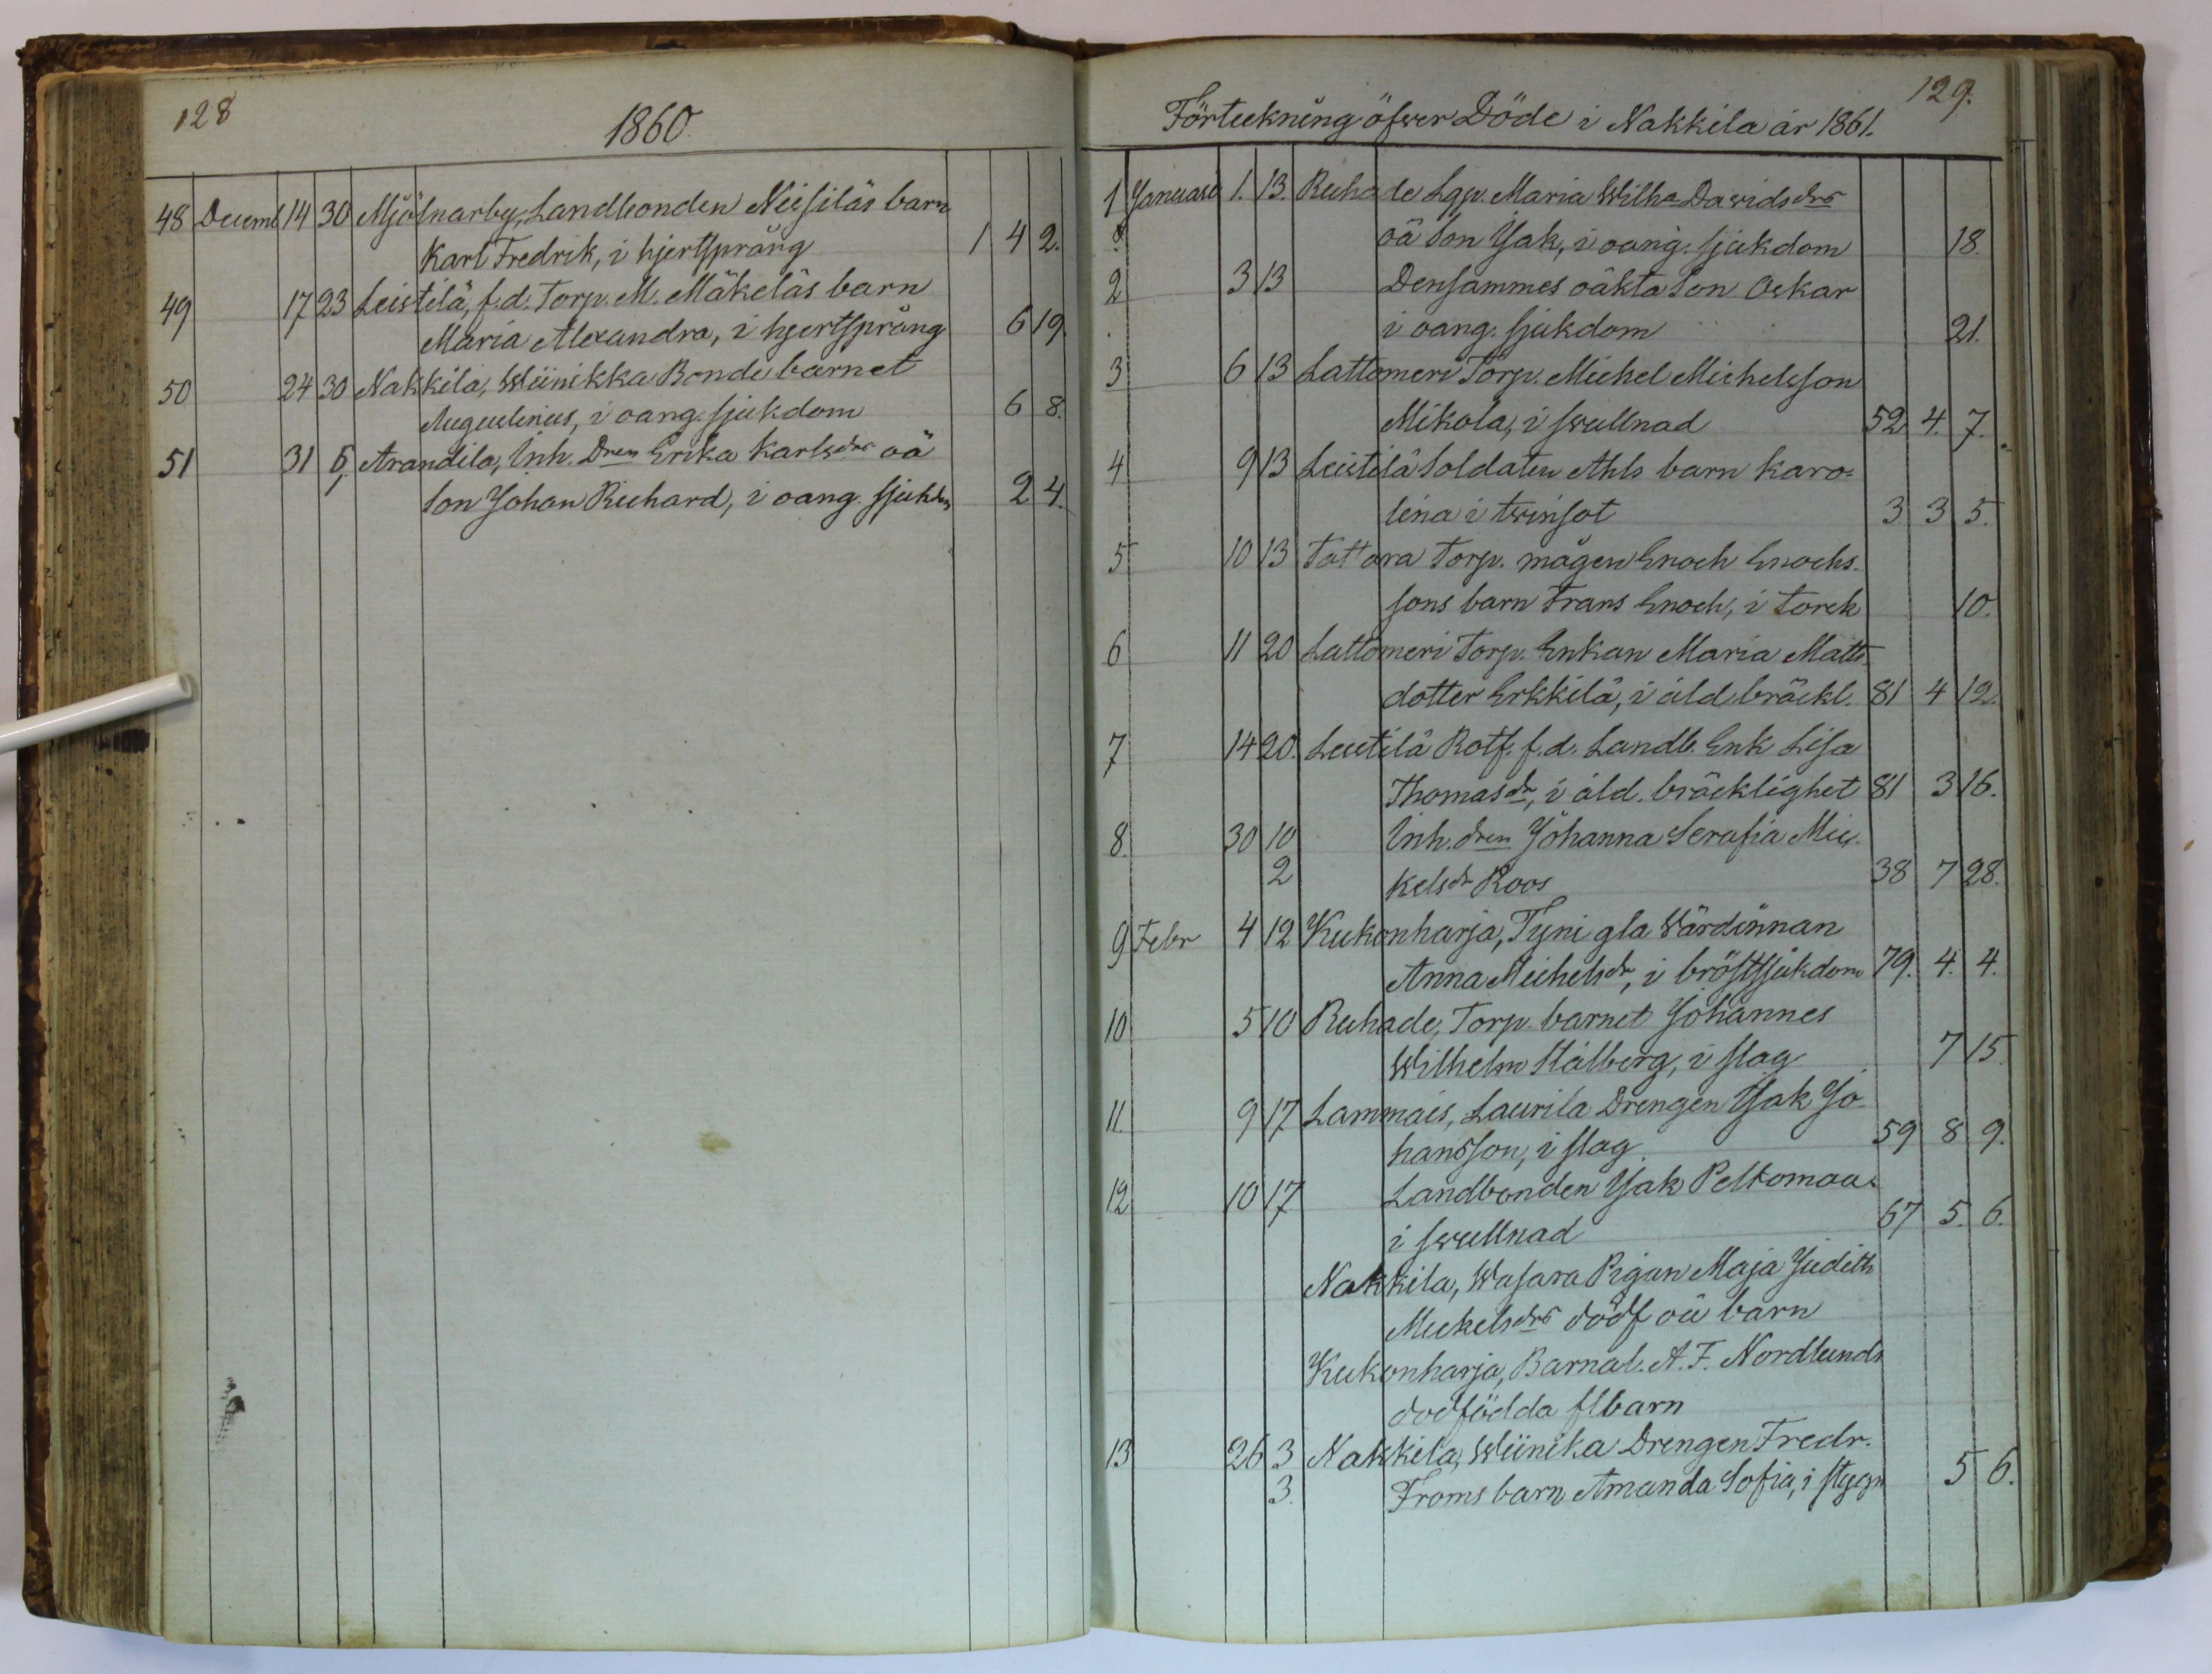 128
1860
48 Decemb 14 30 Mjölnarby, Landbonden Neisiläs barn
Karl Fredrik, i hjertsprång 1 4 2.
49 17 23 Leistilä, f.d. Torp. M. Mäkeläs barn
Maria Alexandra, i hjertsprång 6 19.
50 24 30 Nakkila, Wiinikka Bonde barnet
Augulinus, i oang. sjukdom 6 8.
51 31 6 Arandila, Inh. Dren Erika Karlsdrs oä
son Johan Richard, i oang. sjukdm 2 4.
129.
Förteckning öfwer Döde i Nakkila år 1861.
1 Januari 1. 13. Ruhade Lqp. Maria Wilha Davidsdrs
oä son Isak, i oang. sjukdom 18.
2 3 13 Densammes oäkta son Oskar
i oang. sjukdom 21.
3 6 13 Lattomeri Torp. Mickel Michelsson
Mikola, i swullnad 52 4. 7.
4 9 13 Leistilä Soldaten Ahls barn Karo-
lina i twinsot 3 3 5.
5 10 13 Tattara Torp. mågen Enoch Enochs-
sons barn Frans Enoch, i torsk 10.
6 11 20 Lattomeri Torp. Enkan Maria Matts-
dotter Erkkilä, i åld. bräckl. 81 4 12.
7 14 20. Leistilä Rotf. f.d. Landb. Enk Lisa
Thomasdr, i åld. bräcklighet 81 3 16.
8. 30 10 Inh. dren Johanna Serafia Mic-
2 kelsdr Roos 38 7 28.
9 Febr 4 12 Kukonharja, Tyni gla Wärdinnan
Anna Michelsdr, i bröstsjukdom 79. 4. 4.
10 5 10 Ruhade, Torp. barnet Johannes
Wilhelm Stålberg, i slag 7 15.
11. 9 17 Lammais, Laurila Drengen Isak Jo-
hansson, i slag. 59 8 9.
12 10 17 Landbonden Isak Peltomaa
i swullnad 67 5. 6.
Nakkila, Wasara Pigan Maja Judith
Mickelsdrs dödf oä barn
Kukonharja, Barnal. A. F. Nordlunds
dödfödda flbarn
13 26 3 Nakkila, Wiinika Drengen Fredr.
3. Froms barn Amanda Sofia, i stygn 5 6.